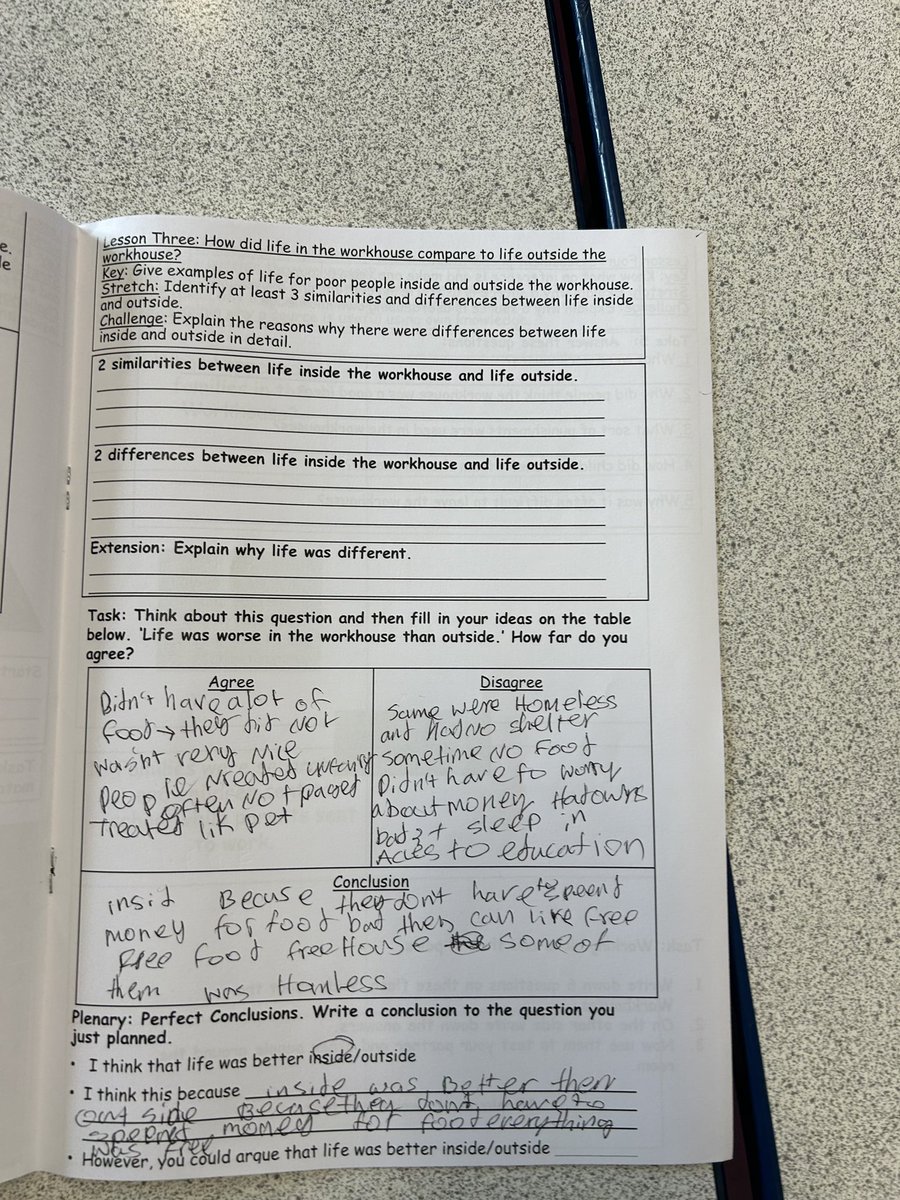 e.
le
Lesson Three: How did life in the workhouse compare to life outside the
workhouse?
Key: Give examples of life for poor people inside and outside the workhouse.
Stretch: Identify at least 3 similarities and differences between life inside
and outside.
Challenge: Explain the reasons why there were differences between life
inside and outside in detail.
2 similarities between life inside the workhouse and life outside.
2 differences between life inside the workhouse and life outside.
Extension: Explain why life was different.
Task: Think about this question and then fill in your ideas on the table
below. 'Life was worse in the workhouse than outside.' How far do you
agree?
Agree
Didn't have alot of
food → they did Not
wasn't very Nice
People treated
often Not
treated lik Pet
Disagree
Some were Homeless
and Had No shelter
sometime No Food
Didn't have to worry
about money
sleep in
to education
Conclusion
insid Becuse they don't have to speend
money for food bat they can live free
free food free House some of
them was Hamless
Plenary: Perfect Conclusions. Write a conclusion to the question you
just planned.
• I think that life was better inside/outside
• I think this because inside was Better then
out side Because they dont have to
speend money for food everything
was free
• However, you could argue that life was better inside/outside